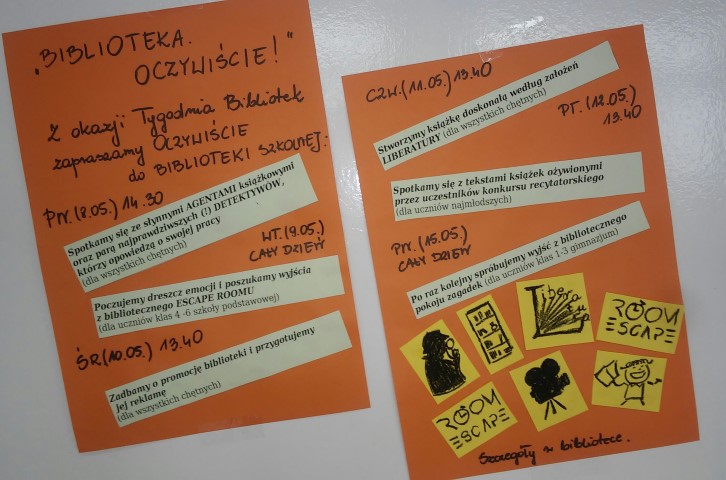 „BIBLIOTEKA.
OCZYWIŚCIE!"
Z okazji Tygodnia Bibliotek
zapraszamy OCZYWIŚCIE
do BIBLIOTEKI SZKOLNEJ:
PN.(8.05.) 14.30
Spotkamy się ze słynnymi AGENTAMI książkowymi
oraz parą najprawdziwszych (!) DETEKTYWÓW,
którzy opowiedzą o swojej pracy
(dla wszystkich chętnych)
WT.(9.05.)
CAŁY DZIEŃ
Poczujemy dreszcz emocji i poszukamy wyjścia
z bibliotecznego ESCAPE ROOMU
(dla uczniów klas 4 -6 szkoły podstawowej)
ŚR.(10.05.) 13.40
Zadbamy o promocję biblioteki i przygotujemy
jej reklamę
(dla wszystkich chętnych)
CZW.(11.05.) 13.40
Stworzymy książkę doskonałą według założeń
LIBERATURY (dla wszystkich chętnych)
PT.(12.05.)
13.40
Spotkamy się z tekstami książek ożywionymi
przez uczestników konkursu recytatorskiego
(dla uczniów najmłodszych)
PN.(15.05.)
CAŁY DZIEŃ
Po raz kolejny spróbujemy wyjść z bibliotecznego
pokoju zagadek (dla uczniów klas 1-3 gimnazjum)
Liberatura
ROOM
ESCAPE
ROOM
ESCAPE
Szczegóły w bibliotece.